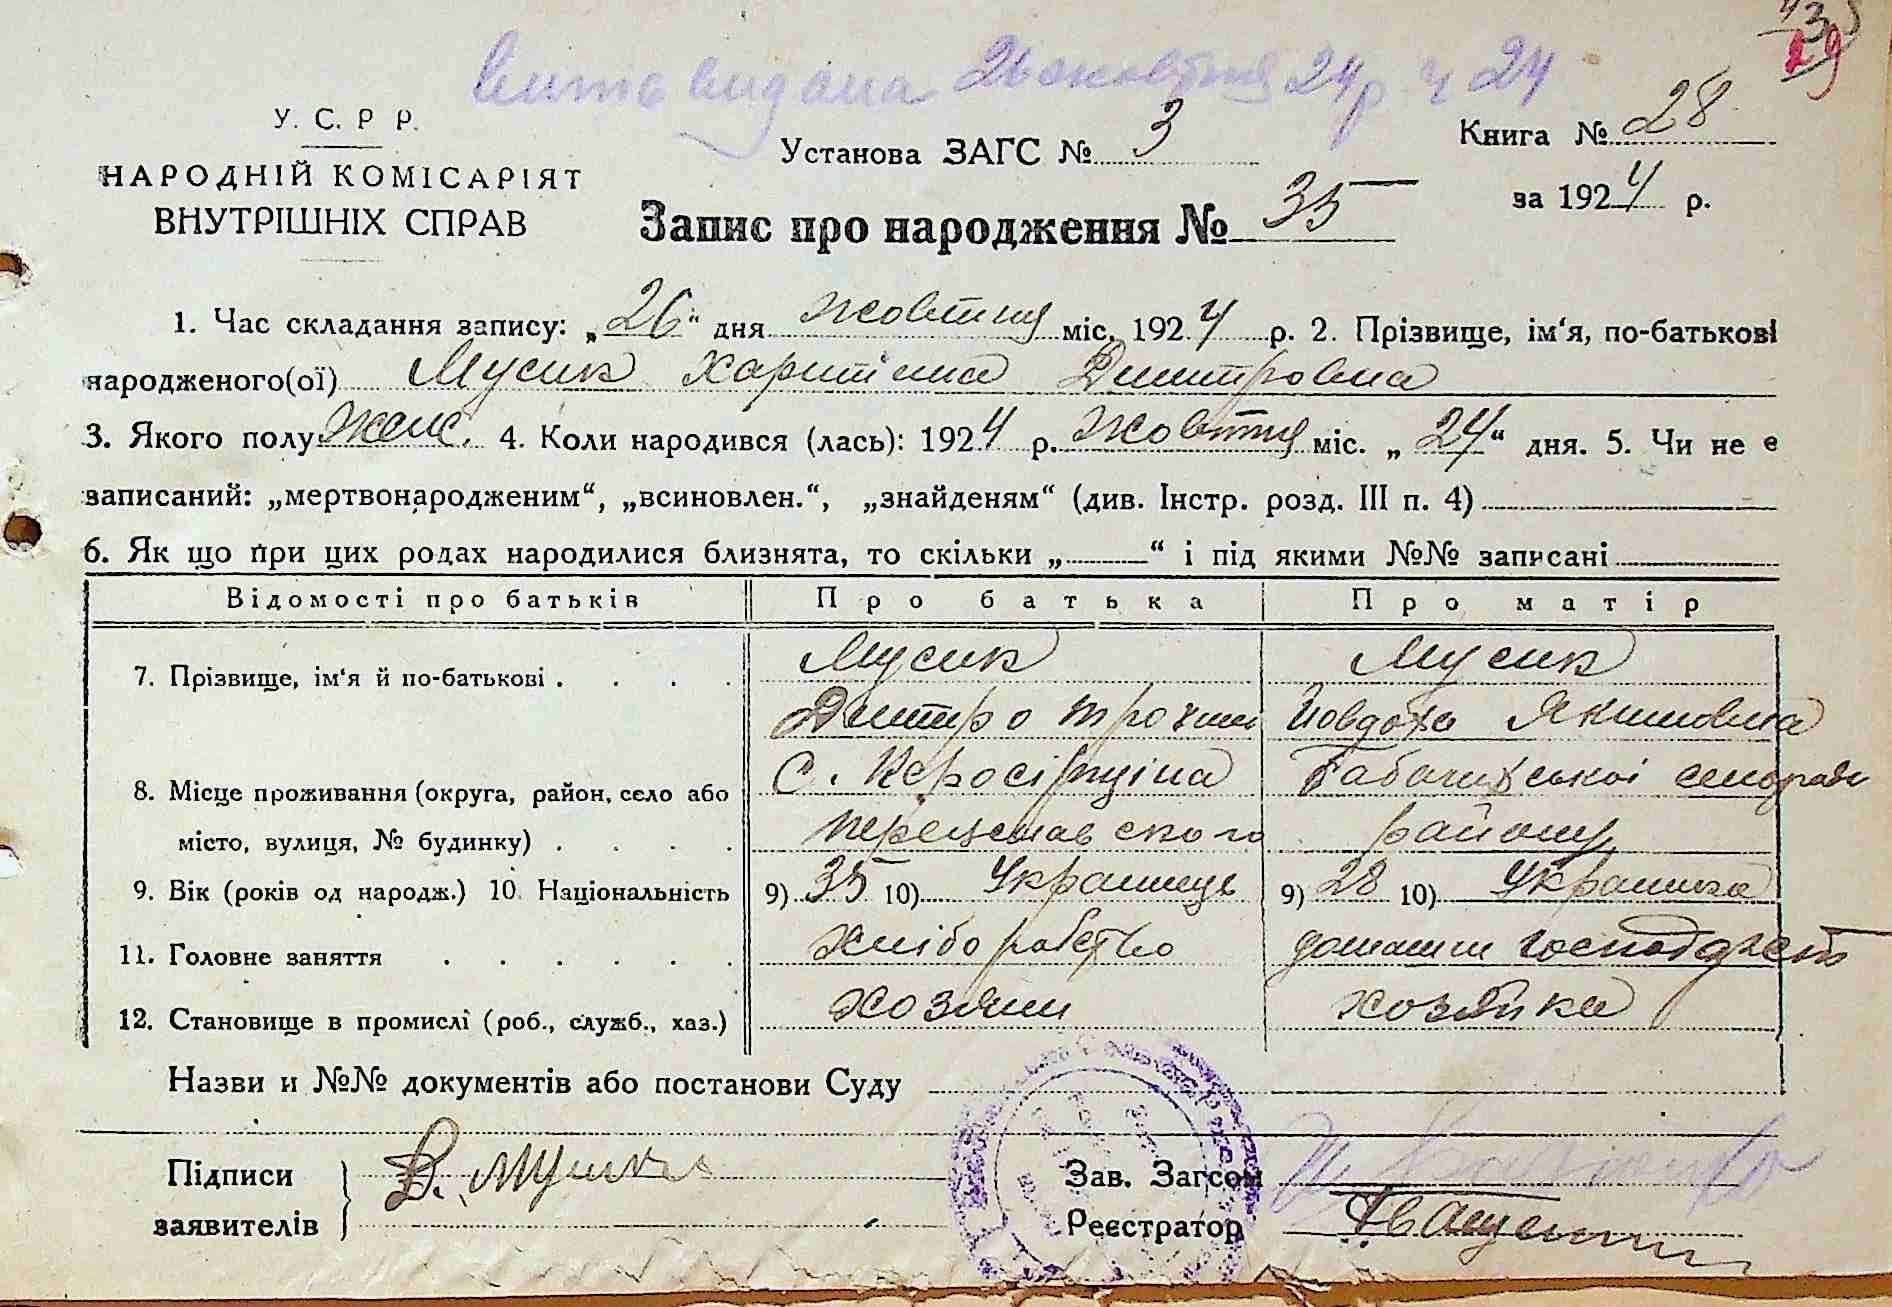 29
видана 26 жовтня 24 р ч 24
У. С. Р Р.
НАРОДНІЙ КОМІСАРІЯТ
ВНУТРІШНІХ СПРАВ
Установа ЗАГС № 3
Книга № 28
за 1924 р.
Запис про народження № 35
1. Час складання запису: „26“ дня жовтня міс. 1924 р. 2. Прізвище, ім‘я, по-батькові
народженого(ої) Мусик Харитина Дмитровна
3. Якого полу жен. 4. Коли народився (лась): 1924 р. жовтня міс. „24“ дня. 5. Чи не є
записаний: „мертвонародженим“, „всиновлен.“, „знайденям“ (див. Інстр. розд. III п. 4)
6. Як що при цих родах народилися близнята, то скільки „ “ і під якими №№ записані
Відомості про батьків Про батька Про матір
7. Прізвище, ім‘я й по-батькові . . . . Мусик Мусик
Дмитро Трохим Йовдоха Якимовна
8. Місце проживання (округа, район, село або С. селоради
місто, вулиця, № будинку) . . . . району
9. Вік (років од народж.) 10. Національність 9) 35 10) Украинець 9) 28 10) Украинка
11. Головне заняття . . . . . . хліборобство домашн господарст
12. Становище в промислі (роб., служб., хаз.) хозяин хозяйка
Назви и №№ документів або постанови Суду
Підписи
заявителів
Д. Мусик
Зав. Загсом
Реєстратор Іващенко